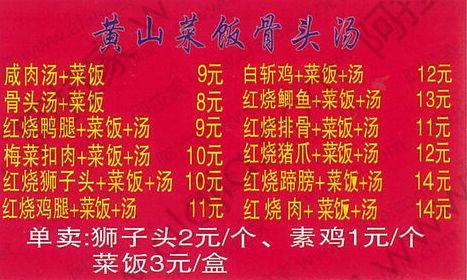 黄山菜饭骨头汤
咸肉汤+菜饭 9元
骨头汤+菜饭 8元
红烧鸭腿+菜饭+汤 9元
梅菜扣肉+菜饭+汤 10元
红烧狮子头+菜饭+汤 10元
红烧鸡腿+菜饭+汤 11元
白斩鸡+菜饭+汤 12元
红烧鲫鱼+菜饭+汤 13元
红烧排骨+菜饭+汤 11元
红烧猪爪+菜饭+汤 12元
红烧蹄膀+菜饭+汤 14元
红烧肉+菜饭+汤 14元
单卖:狮子头2元/个、素鸡1元/个
菜饭3元/盒